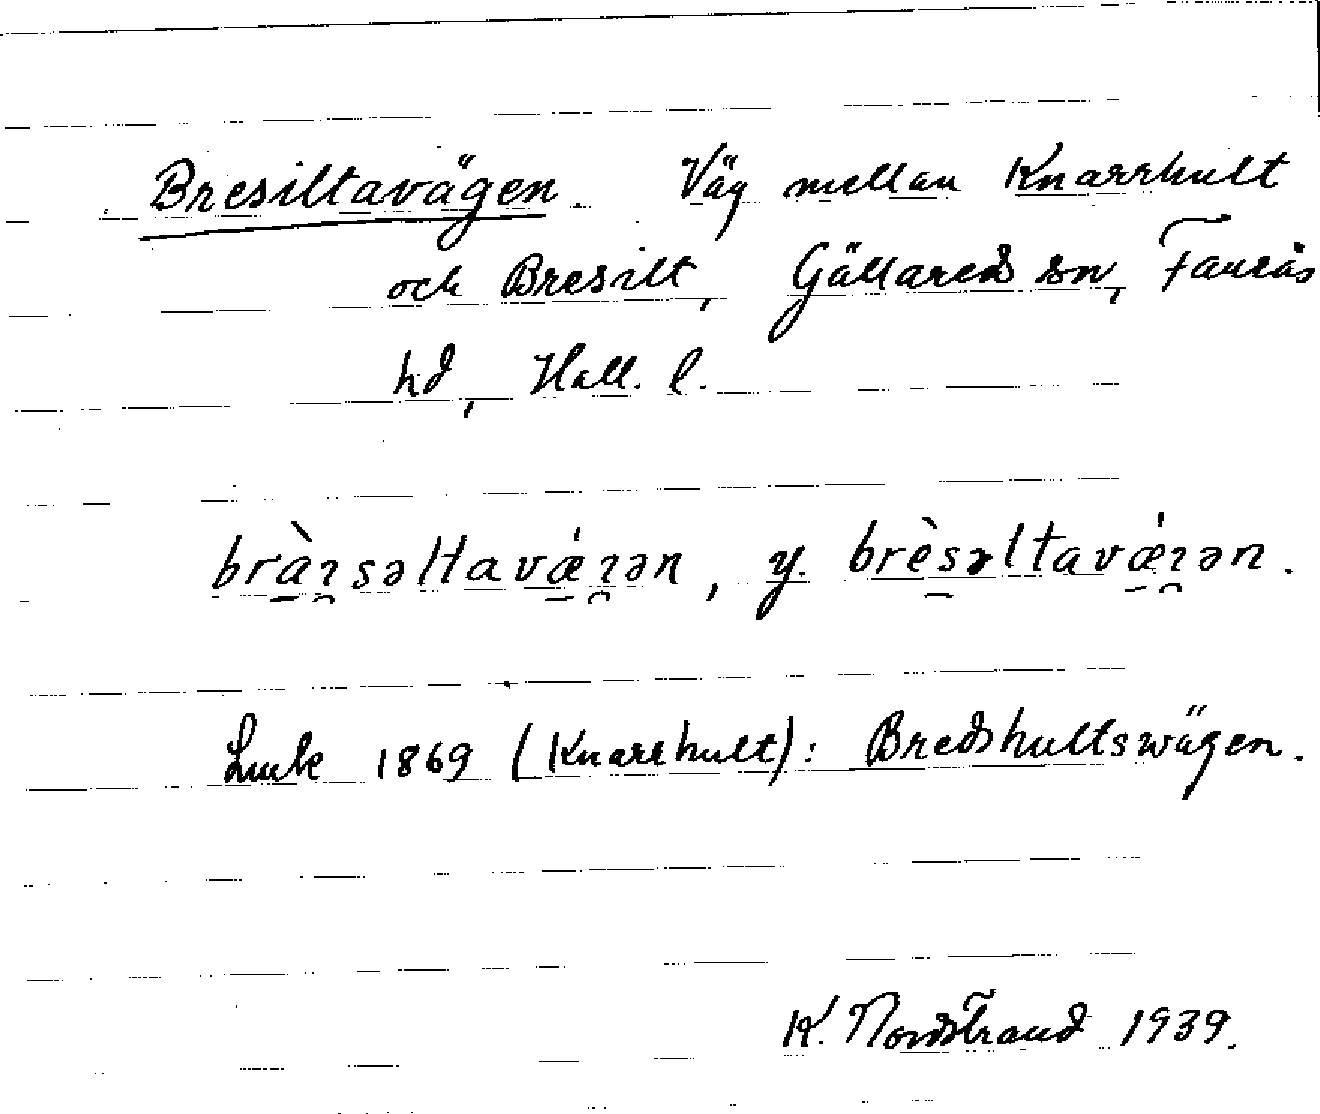 Bresiltavägen. Väg mellan Knarrhult
och Bresilt, Gällareds sn, Faurås
hd, Hall. l.
bràꝛsəltavǽꝛən, y. brèsəltavǽꝛən.
Lmk 1869 (Knarrhult): Bredshultswägen.
K. Nordstrand 1939.